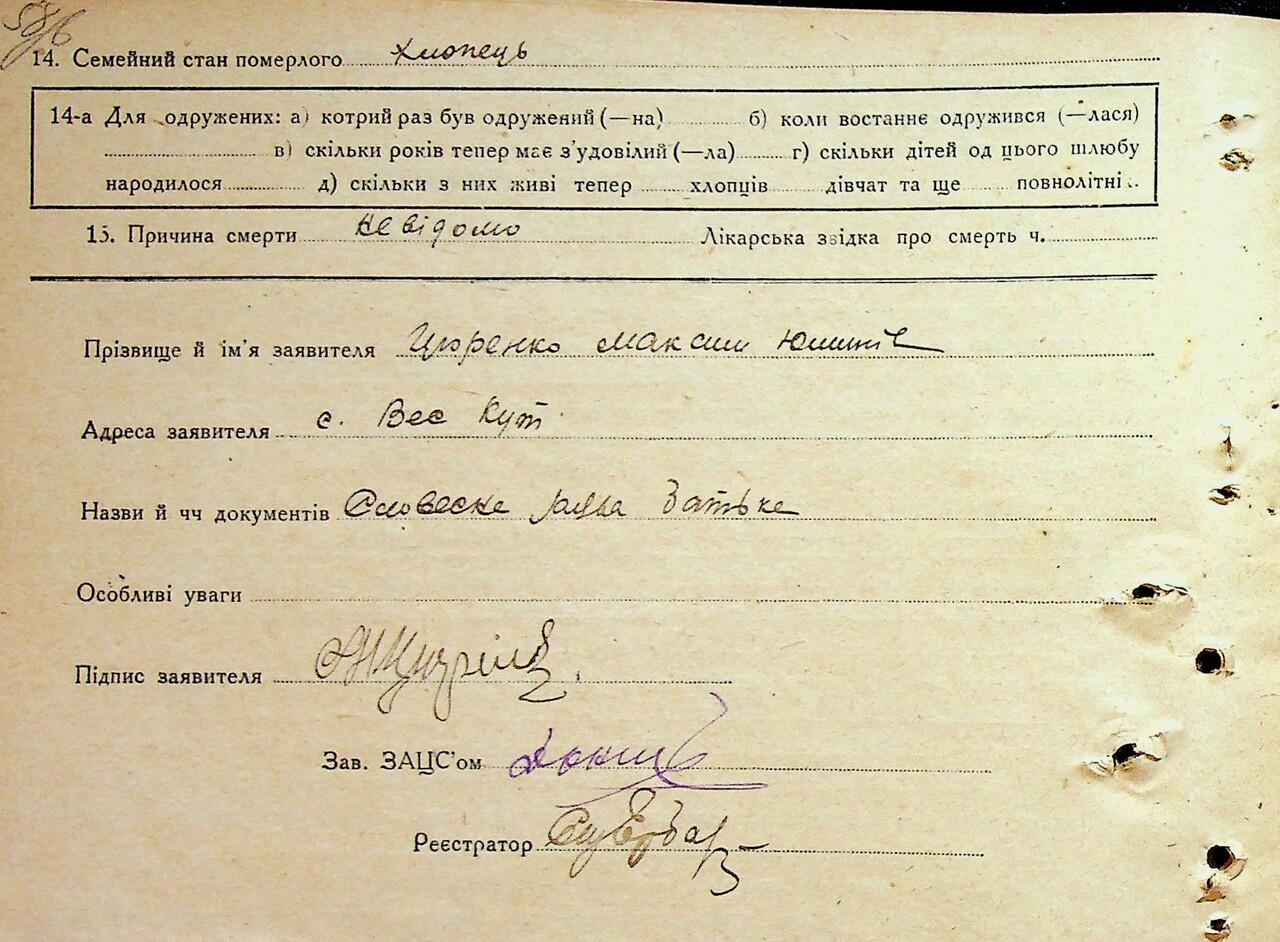 14. Семейний стан померлого хлопець
14-а Для одружених: а) котрий раз був одружений (—на) б) коли востаннє одружився (—лася)
в) скільки років тепер має з'удовілий (—ла) г) скільки дітей од цього шлюбу
народилося д) скільки з них живі тепер хлопців дівчат та ще повнолітні
15. Причина смерти невідомо Лікарська звідка про смерть ч.
Прізвище й ім'я заявителя Цюренко Максим
Адреса заявителя с. Вес Кут
Назви й чч документів Словеске батьке
Особливі уваги
Підпис заявителя
Зав. ЗАЦС'ом
Реєстратор